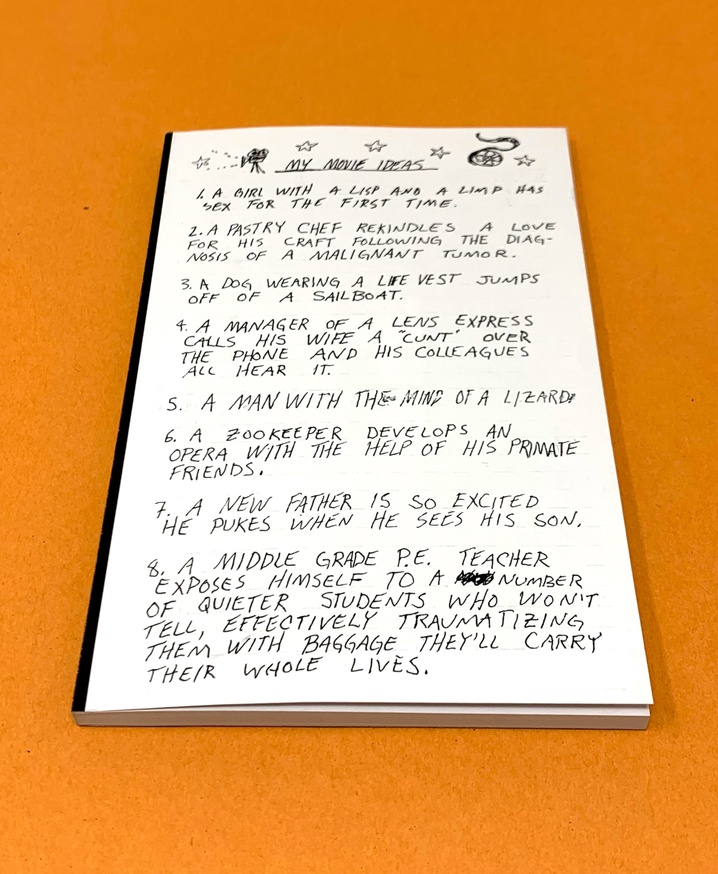 MY MOVIE IDEAS
1. A GIRL WITH A LISP AND A LIMP HAS
SEX FOR THE FIRST TIME.
2. A PASTRY CHEF REKINDLES A LOVE
FOR HIS CRAFT FOLLOWING THE DIAG-
NOSIS OF A MALIGNANT TUMOR.
3. A DOG WEARING A LIFE VEST JUMPS
OFF OF A SAILBOAT.
4. A MANAGER OF A LENS EXPRESS
CALLS HIS WIFE A "CUNT" OVER
THE PHONE AND HIS COLLEAGUES
ALL HEAR IT.
5. A MAN WITH THE MIND OF A LIZARD.
6. A ZOOKEEPER DEVELOPS AN
OPERA WITH THE HELP OF HIS PRIMATE
FRIENDS.
7. A NEW FATHER IS SO EXCITED
HE PUKES WHEN HE SEES HIS SON.
8. A MIDDLE GRADE P.E. TEACHER
EXPOSES HIMSELF TO A NUMBER
OF QUIETER STUDENTS WHO WON'T
TELL, EFFECTIVELY TRAUMATIZING
THEM WITH BAGGAGE THEY'LL CARRY
THEIR WHOLE LIVES.